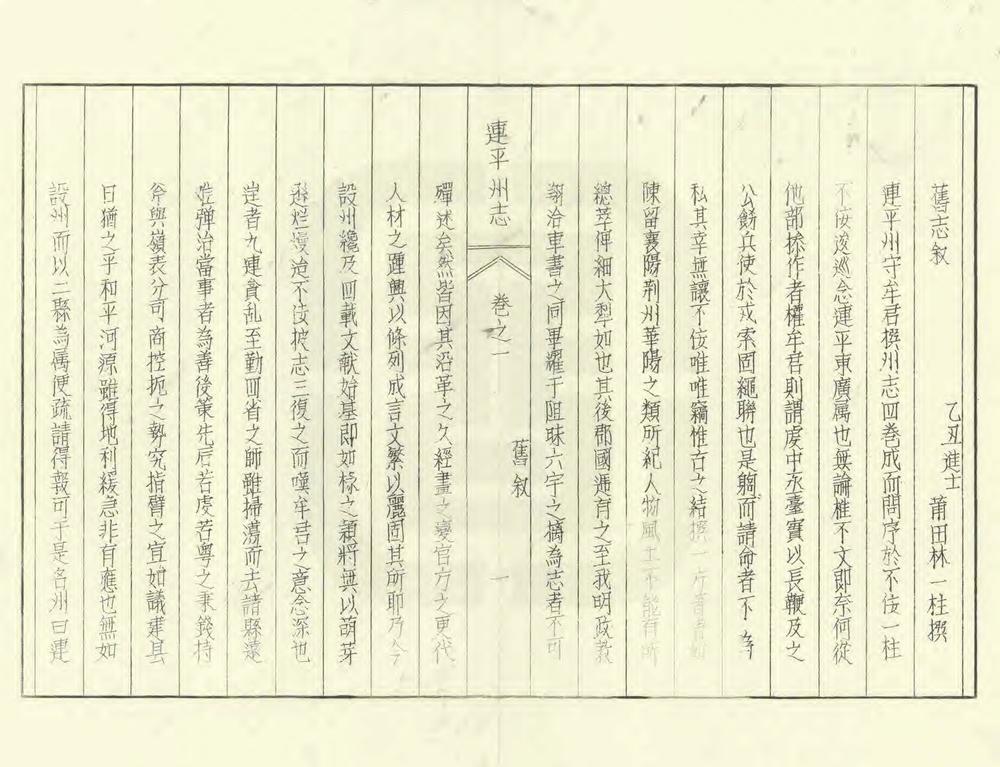 舊志叙
乙丑進士 莆田林一柱撰
連平州守牟君撰州志四卷成而問序於不佞一柱
不佞逡巡念連平東廣属也無論椎不文即奈何從
他部操作者權牟君則謂虔中丞臺實以長鞭及之
公餝兵使於戎索固繩聯也是躬而請命者不
私其幸無讓不佞唯唯竊惟古之結撰一
陳留襄陽荆州華陽之類所紀人物風土不能有所
總萃俾細大犁如也其後郡國遞有之至我明政教
翔洽車書之同畢耀于阻昧六宇之橋為志者不可
舊叙 一
連平州志 卷之一
殫述矣然皆因其沿革之久經畫之變官方之更代
人材之踵興以條列成言文繁以麗固其所耶乃今
設州纔及四載文献始基即如椽之穎將無以萌芽
遜爛漫迨不佞披志三復之而嘆牟君之意念深也
往者九連貪乱至勤四省之師雖掃蕩而去諸縣遠
難弹治當事者為善後策先后若虔若粤之秉錢持
斧與嶺表分司商控扼之勢究指臂之宜如議建县
日猶之乎和平河源雖得地利緩急非有應也無如
設州而以二縣為属便疏請得報可于是名州曰連